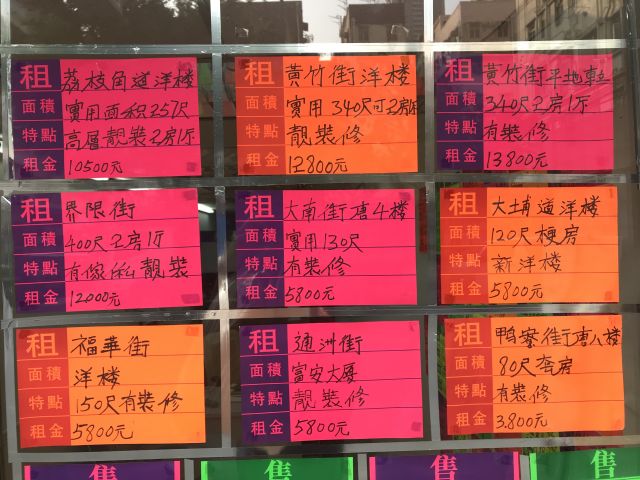 租 荔枝角道洋楼
面積 實用面积257尺
特點 高層靓装2房1厅
租金 10500元
租 黄竹街洋楼
面積 實用340尺可2房
特點 靓装修
租金 12800元
租 黄竹街平地車立
面積 340尺2房1厅
特點 有装修
租金 13800元
租 界限街
面積 400尺2房1厅
特點 有傢俬靓装
租金 12000元
租 大南街唐4楼
面積 實用130尺
特點 有装修
租金 5800元
租 大埔道洋楼
面積 120尺梗房
特點 新洋楼
租金 5800元
租 福華街
面積 洋楼
特點 150尺有装修
租金 5800元
租 通洲街
面積 富安大厦
特點 靓装修
租金 5800元
租 鸭寮街唐楼
面積 80尺套房
特點 有装修
租金 3.800元
售
售
售
售